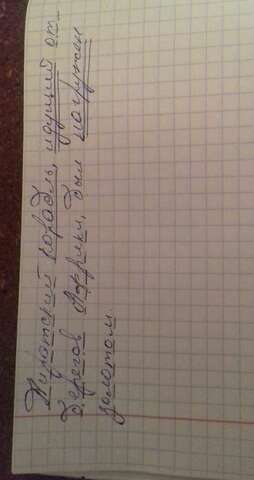 Пиратский корабль, идущий от
берегов Африки, был нагружен
золотом.